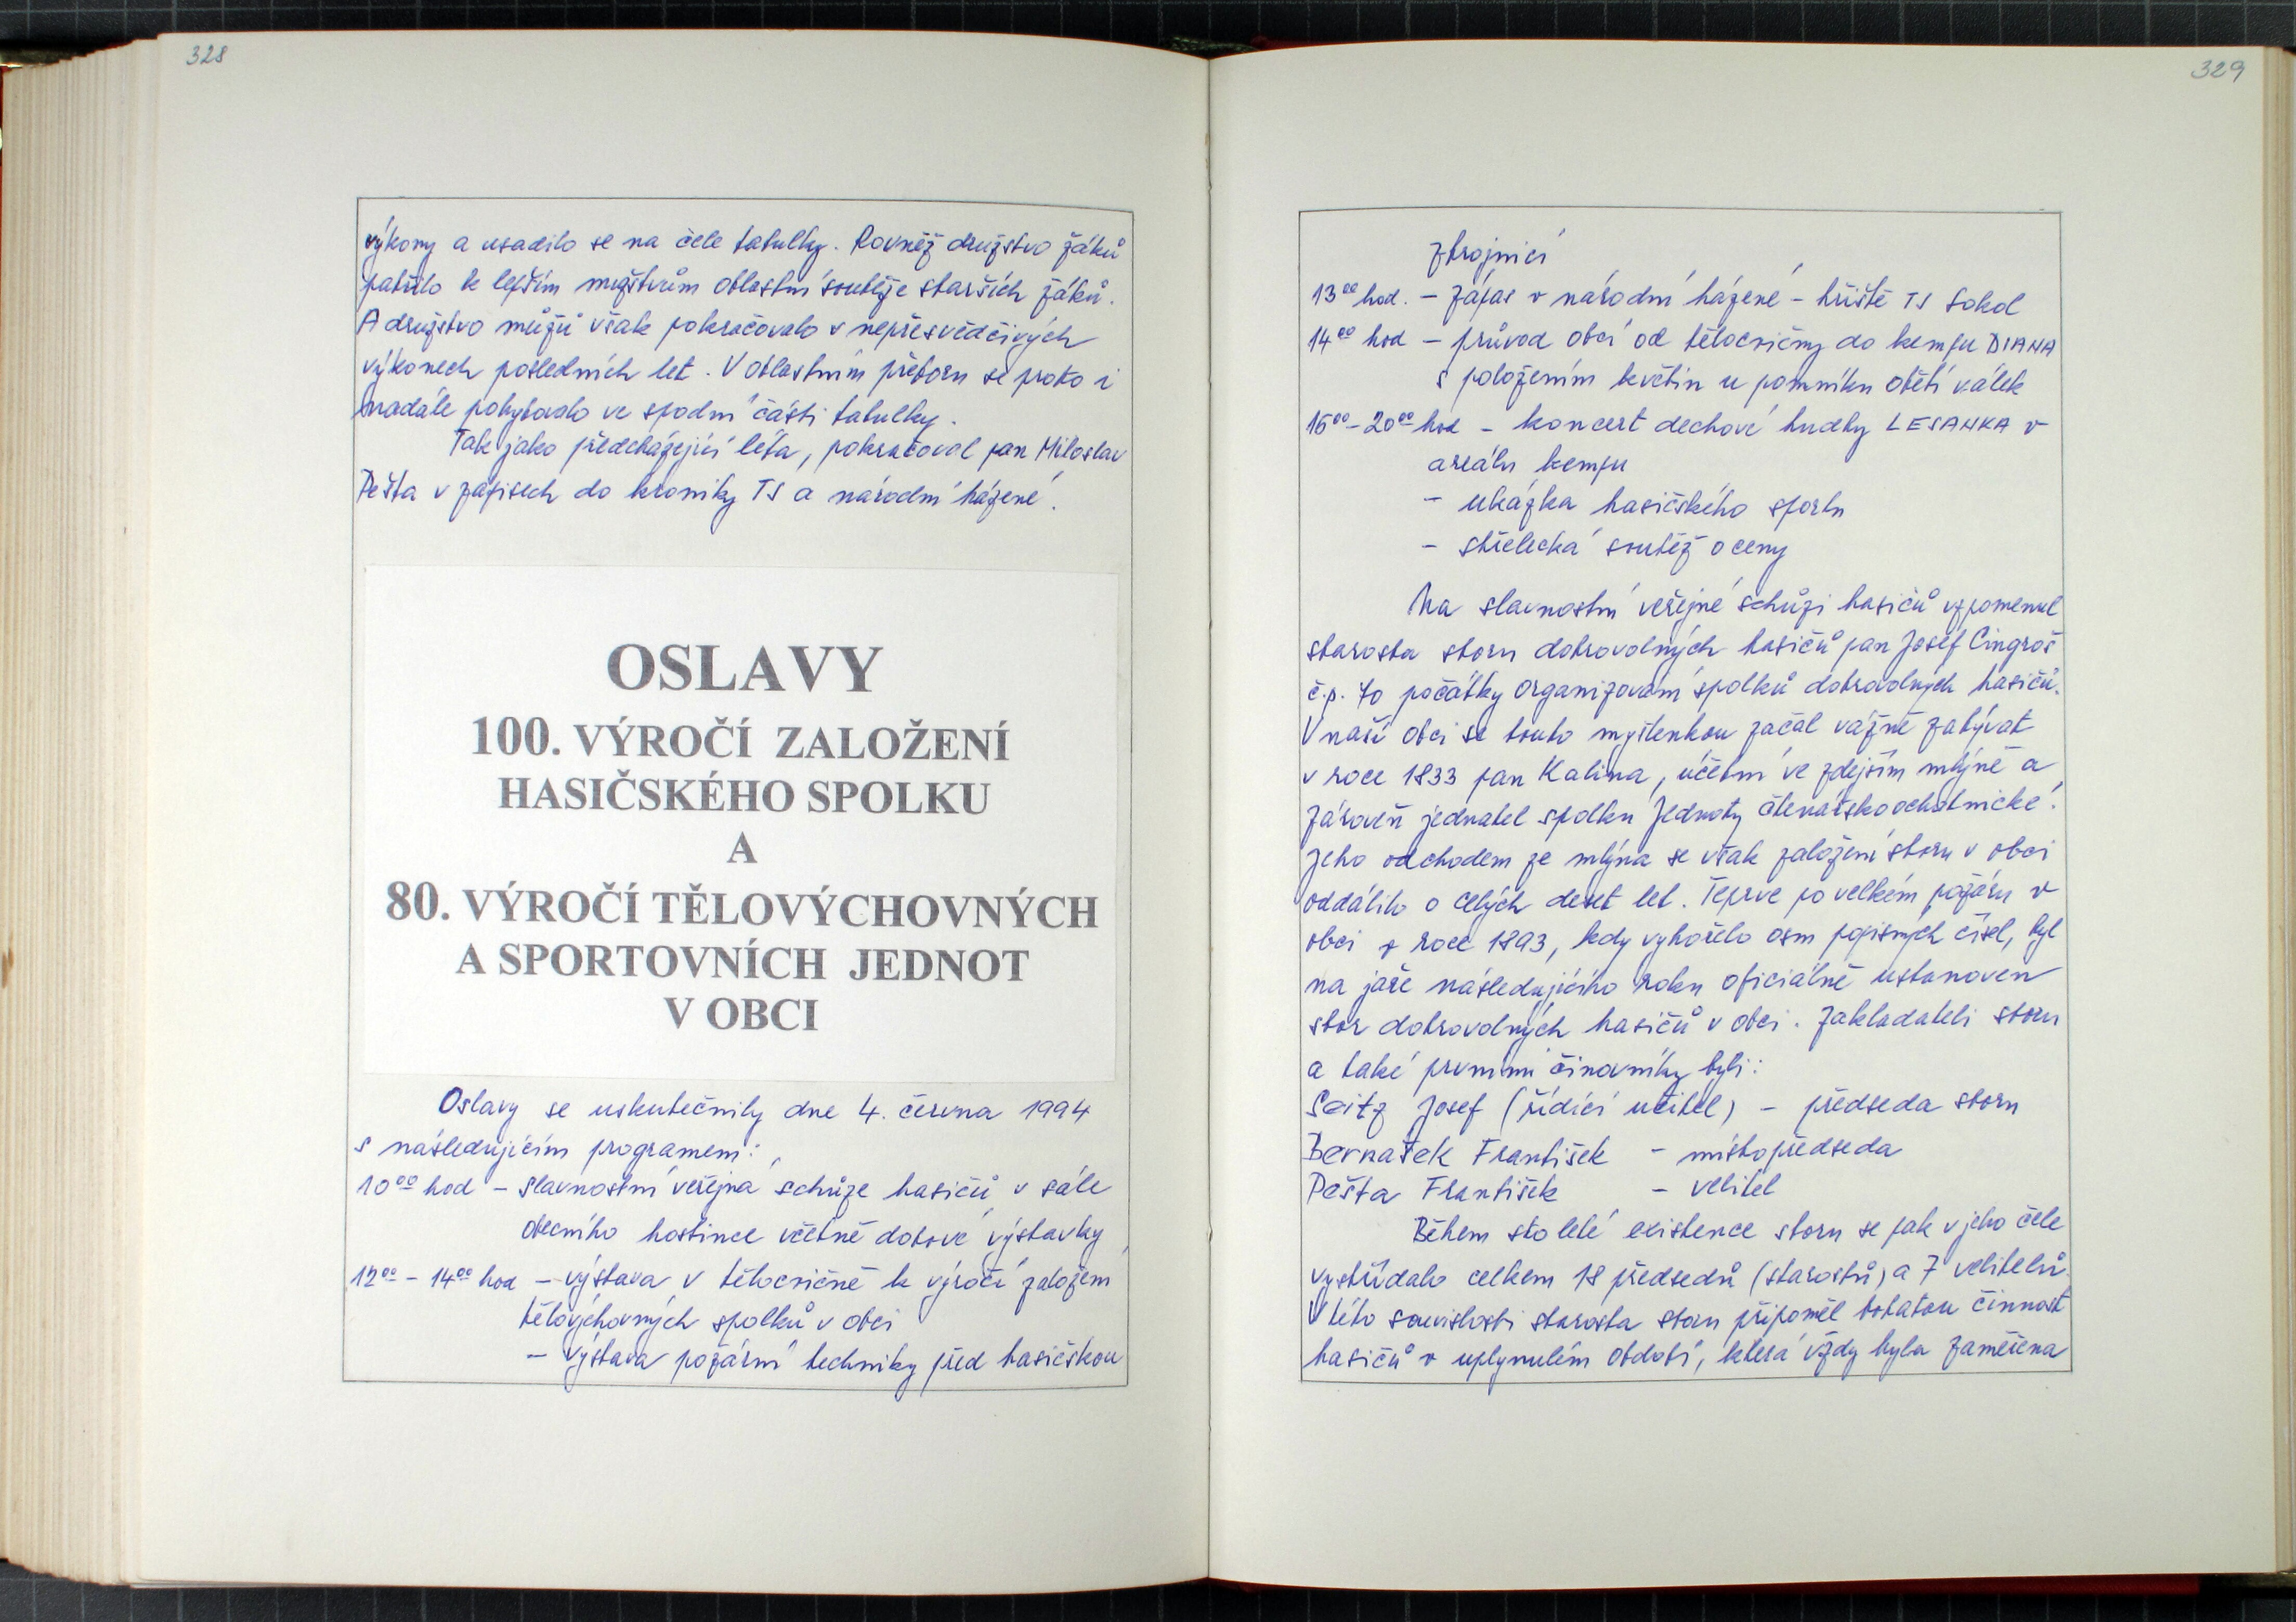 328
výkony a usadilo se na čele tabulky. Rovněž družstvo žáků
patřilo k lepším mužstvům oblastní soutěže starších žáků.
A družstvo mužů však pokračovalo v nepřesvědčivých
výkonech posledních let. V oblastním přeboru se proto i
nadále pohybovalo ve spodní části tabulky.
Tak jako předcházející léta, pokračoval pan Miloslav
Pešta v zápisech do kroniky TS a národní házené.
OSLAVY
100. VÝROČÍ ZALOŽENÍ
HASIČSKÉHO SPOLKU
A
80. VÝROČÍ TĚLOVÝCHOVNÝCH
A SPORTOVNÍCH JEDNOT
V OBCI
Oslavy se uskutečnily dne 4. června 1994
s následujícím programem:
10⁰⁰ hod - slavnostní veřejná schůze hasičů v sále
obecního hostince včetně dobové výstavky
12⁰⁰ - 14⁰⁰ hod - výstava v tělocvičně k výročí založení
tělovýchovných spolků v obci
- výstava požární techniky před hasičskou
329
zbrojnicí
13⁰⁰ hod. - zápas v národní házené - hřiště TS Sokol
14⁰⁰ hod - průvod obcí od tělocvičny do kempu DIANA
s položením květin u pomníku obětí válek
15⁰⁰-20⁰⁰ hod - koncert dechové hudby LESANKA v
areálu kempu
- ukázka hasičského sportu
- střelecká soutěž o ceny
Na slavnostní veřejné schůzi hasičů vzpomenul
starosta sboru dobrovolných hasičů pan Josef Cingroš
č.p. 70 počátky organizování spolků dobrovolných hasičů.
V naší obci se touto myšlenkou začal vážně zabývat
v roce 1833 pan Kalina, účetní ve zdejším mlýně a
zároveň jednatel spolku Jednoty čtenářskoochotnické.
Jeho odchodem ze mlýna se však založení sboru v obci
oddálilo o celých deset let. Teprve po velkém požáru v
obci v roce 1893, kdy vyhořelo osm popisných čísel, byl
na jaře následujícího roku oficiálně ustanoven
sbor dobrovolných hasičů v obci. Zakladateli sboru
a také prvními činovníky byli:
Seitz Josef (řídící učitel) - předseda sboru
Bernášek František - místopředseda
Pešta František - velitel
Během stoleté existence sboru se pak v jeho čele
vystřídalo celkem 18 předsedů (starostů) a 7 velitelů.
V této souvislosti starosta sboru připoměl bohatou činnost
hasičů v uplynulém období, která vždy byla zaměřena